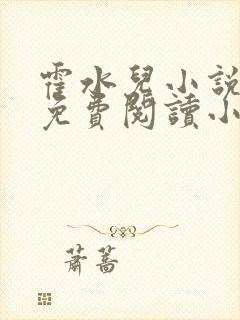 霍水兒小說
免費閱讀小
蕭蒿